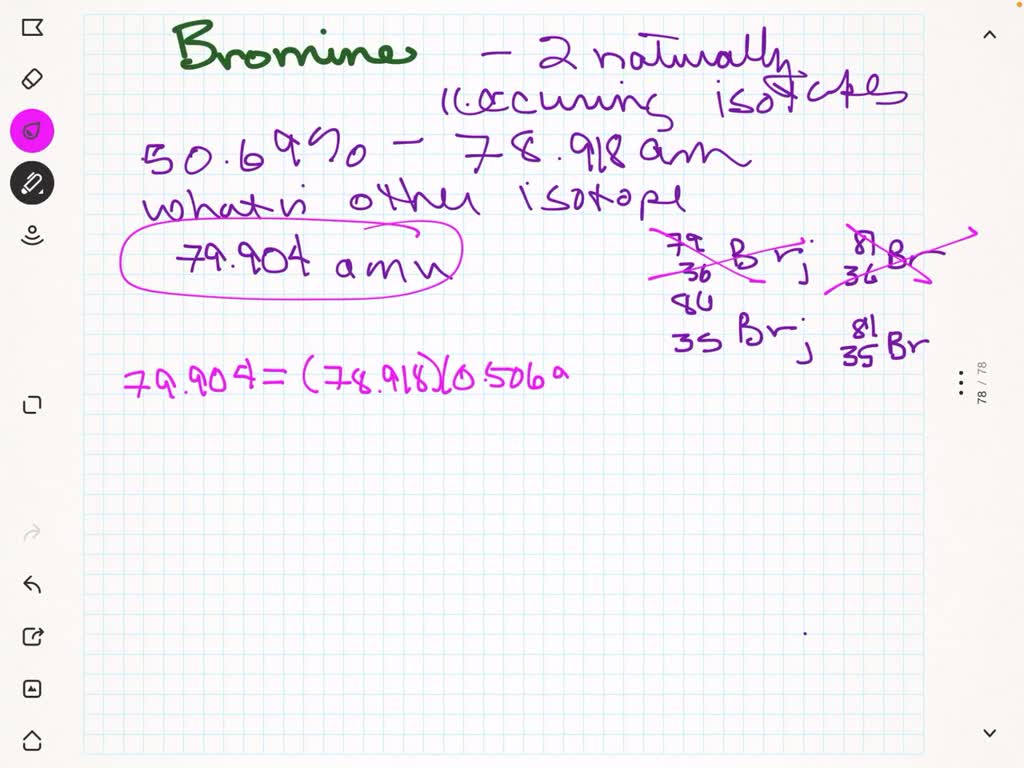 Bromine - 2 naturally
occuring isotopes
50.69% - 78.918 am
what is other isotope
79.904 amu
79 36 Br; 81 36 Br
80 35 Br; 81 35 Br
79.904 = (78.918)(0.5069
78 / 78